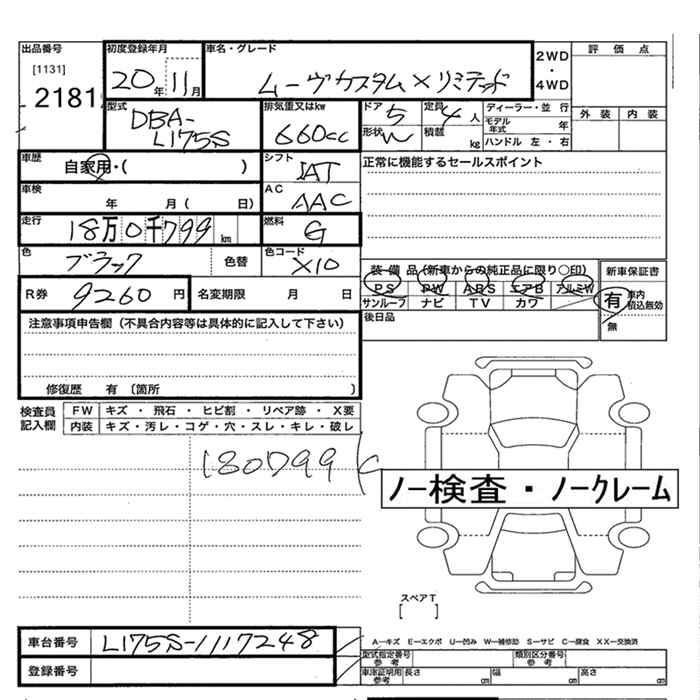 出品番号
[1131]
2181
初度登録年月
20年11月
車名・グレード
ムーヴカスタム×リミテッド
2WD
・
4WD
評価点
外装 内装
型式
DBA-
L175S
排気量又はkw
660cc
ドア 5
形状 W
定員 4人
積載 kg
ディーラー・並行
モデル年式 年
ハンドル 左・右
車歴
自家用・( )
シフト
IAT
正常に機能するセールスポイント
車検
年 月( 日)
AC
AAC
走行
18万0千799km
燃料
G
色
ブラック
色替
色コード
X10
装備品(新車からの純正品に限り○印)
PS PW ABS エアB アルミW
サンルーフ ナビ TV カワ
新車保証書
有 車内積込無効
無
R券
9260円
名変期限 月 日
後日品
注意事項申告欄(不具合内容等は具体的に記入して下さい)
修復歴 有〔箇所 〕
検査員記入欄
FW キズ・飛石・ヒビ割・リペア跡・X要
内装 キズ・汚レ・コゲ・穴・スレ・キレ・破レ
180799
ノー検査・ノークレーム
スペアT
[ ]
車台番号
L175S-1117248
登録番号
A―キズ E―エクボ U―凹み W―補修跡 S―サビ C―腐食 XX―交換済
型式指定番号
参考
類別区分番号
参考
車庫証明用
参考
長さ cm 幅 cm 高さ cm